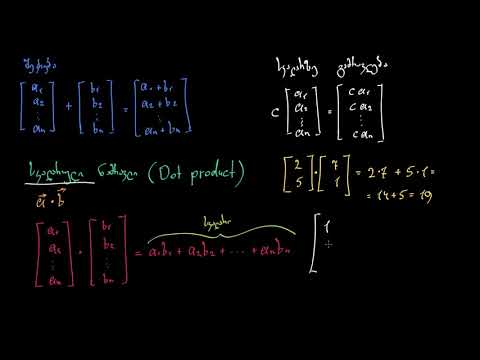 შეკრება
[a₁ a₂ ⋮ aₙ] + [b₁ b₂ ⋮ bₙ] = [a₁+b₁ a₂+b₂ ⋮ aₙ+bₙ]
სკალარზე გამრავლება
c [a₁ a₂ ⋮ aₙ] = [c a₁ c a₂ ⋮ c aₙ]
სკალარული ნამრავლი (Dot product)
a⃗ · b⃗
[2 5] · [7 1] = 2·7 + 5·1 =
= 14+5 = 19
სკალარი
[a₁ a₂ ⋮ aₙ] · [b₁ b₂ ⋮ bₙ] = a₁b₁ + a₂b₂ + ⋯ + aₙbₙ
[1